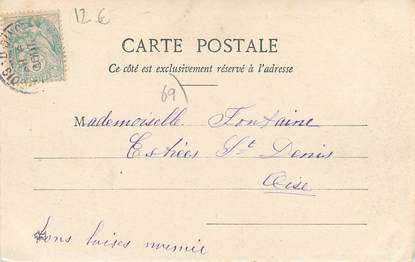 12 €
CARTE POSTALE
Ce côté est exclusivement réservé à l'adresse
69
Mademoiselle Fontaine
Estrées St Denis
Oise
bons baises